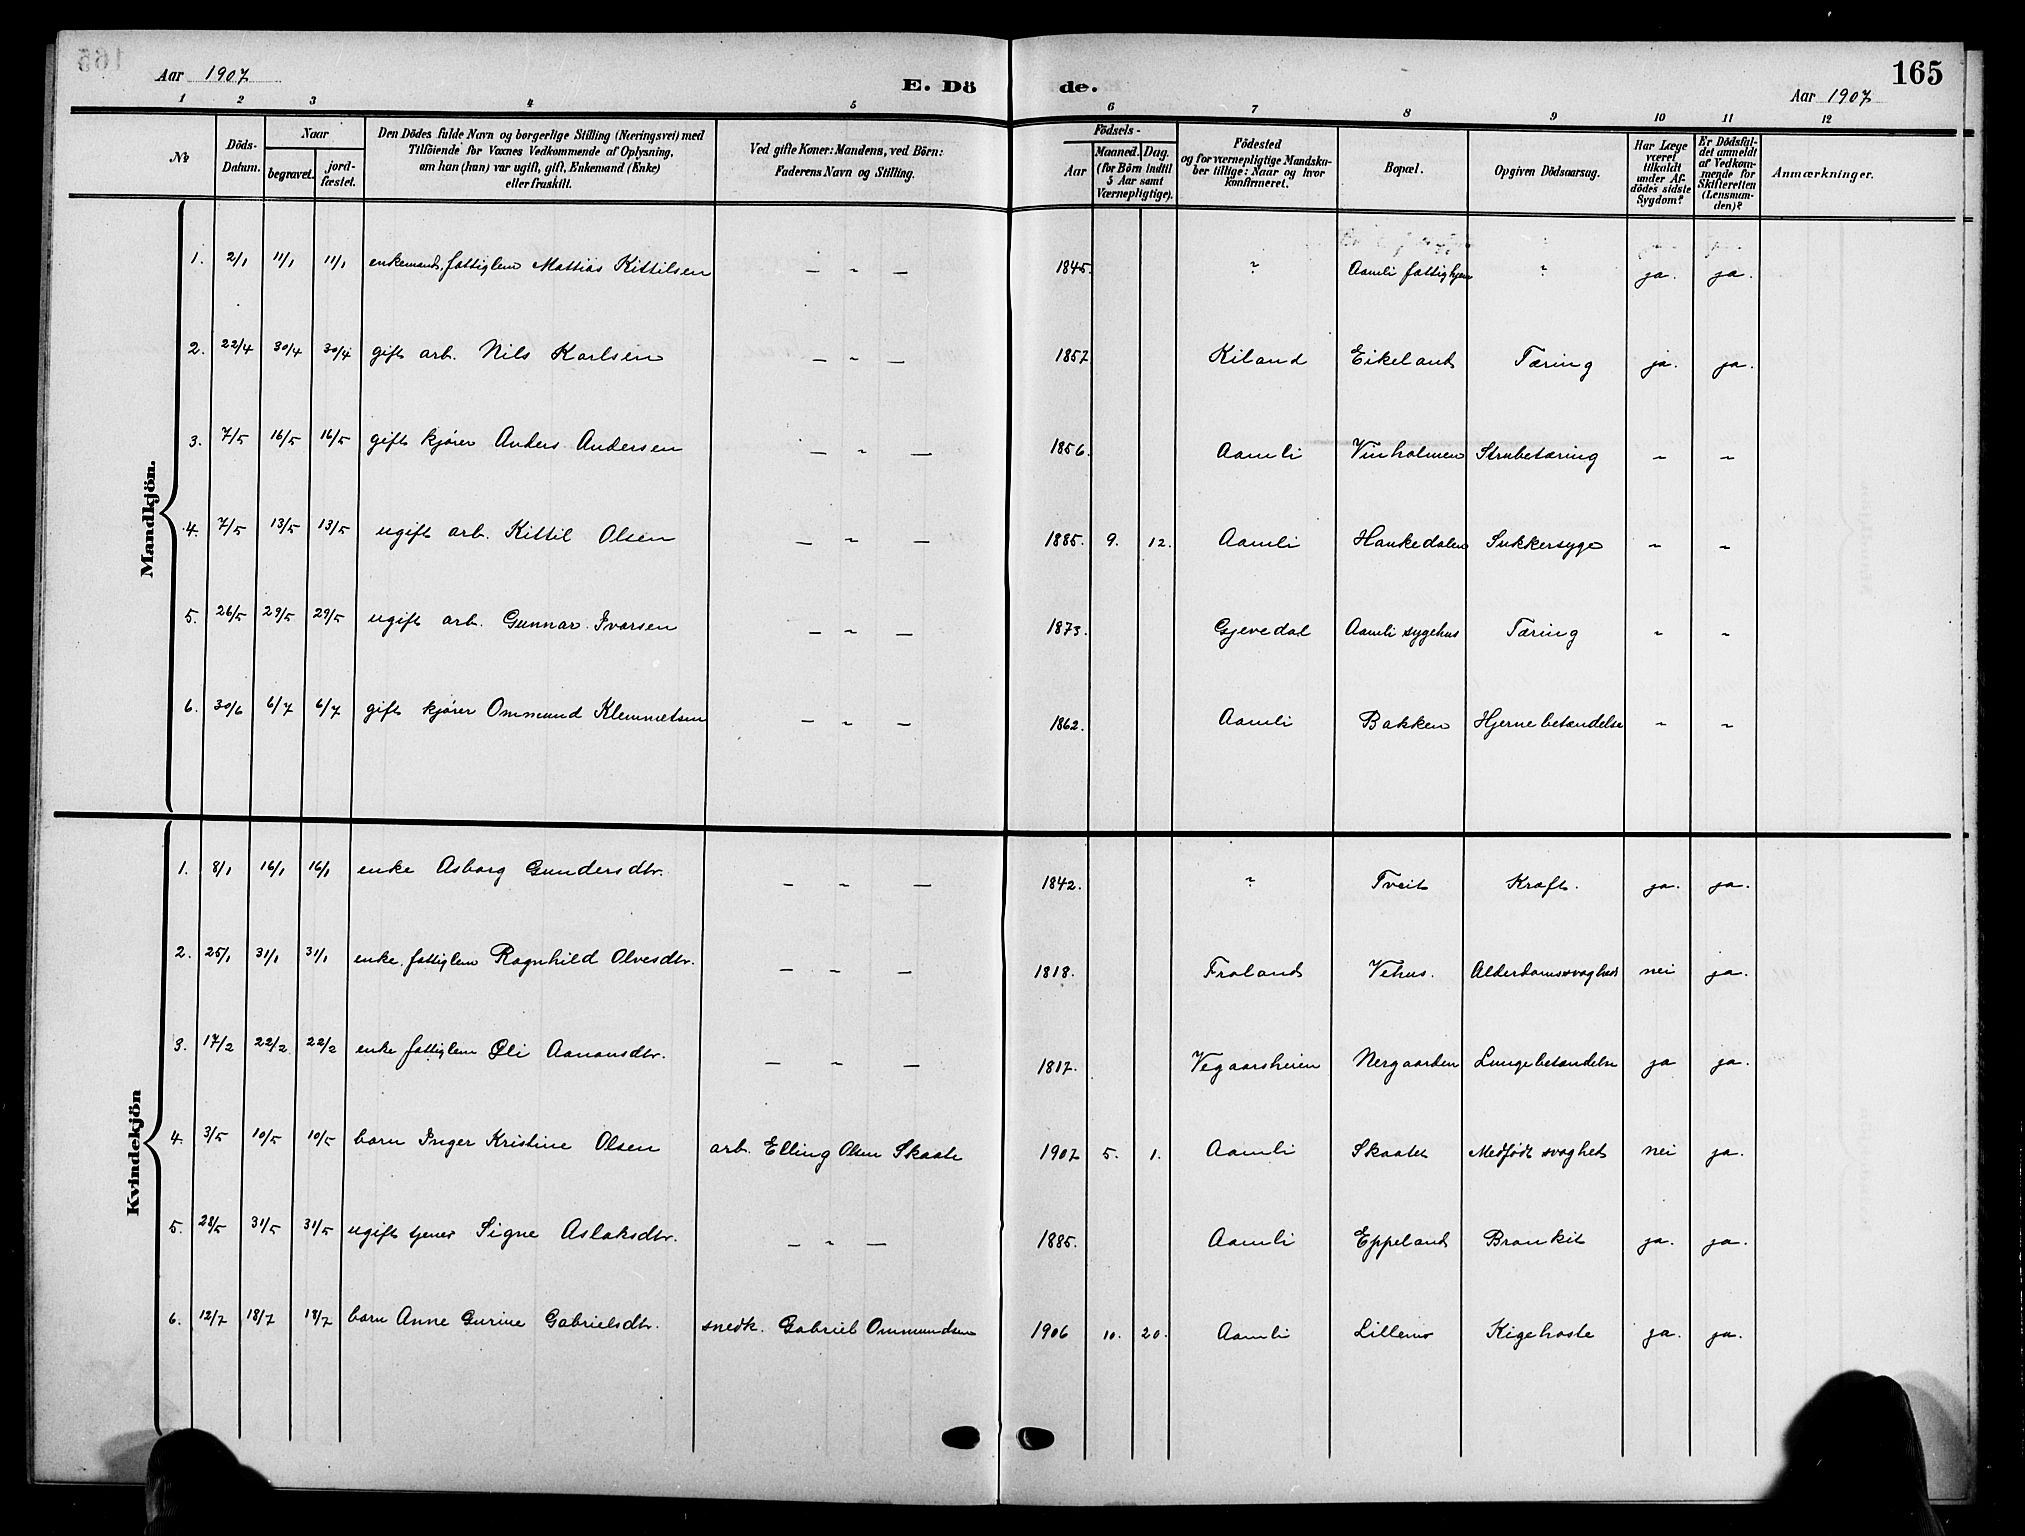 165
Aar 1907
E. Dö de.
Aar 1907
1 2 3 4 5 6 7 8 9 10 11 12
No
Döds-Datum.
Naar begravet. jordfæstet.
Den Dödes fulde Navn og borgerlige Stilling (Næringsvei) med Tilföiende for Voxnes Vedkommende af Oplysning, om han (hun) var ugift, gift, Enkemand (Enke) eller fraskilt.
Ved gifte Koner: Mandens, ved Börn: Faderens Navn og Stilling.
Födsels- Aar Maaned. Dag. (for Börn indtil 5 Aar samt Værnepligtige).
Födested og for værnepligtige Mandskaber tillige: Naar og hvor konfirmeret.
Bopæl.
Opgiven Dödsaarsag.
Har Læge været tilkaldt under Afdödes sidste Sygdom?
Er Dödsfaldet anmeldt af Vedkommende for Skifteretten (Lensmanden)?
Anmærkninger.
Mandkjön.
1. 2/1 11/1 11/1 enkemand, fattiglem Mattias Kittilsen — " — 1845. " Aamli fattighjem " ja. ja.
2. 22/4 30/4 30/4 gift arb. Nils Karlsen — " — 1857 Kiland Eikeland Tæring ja. ja.
3. 7/5 16/5 16/5 gift kjører Anders Andersen — " — 1856. Aamli Vinholmen Strubetæring " "
4. 7/5 13/5 13/5 ugift arb. Kittil Olsen — " — 1885. 9. 12. Aamli Haukedalen Sukkersyge " "
5. 26/5 29/5 29/5 ugift arb. Gunnar Ivarsen — " — 1873. Gjevedal Aamli sygehus Tæring " "
6. 30/6 6/7 6/7 gift kjører Ommund Klemmetsen — " — 1862. Aamli Bakken Hjernebetændelse " "
Kvindekjön
1. 8/1 16/1 16/1 enke Asborg Gundersdtr. — " — 1842. " Tveit Kræft. ja. ja.
2. 25/1 31/1 31/1 enke. fattiglem Ragnhild Olvesdtr. — " — 1818. Froland Vehus. Alderdomssvaghed nei ja.
3. 17/2 22/2 22/2 enke fattiglem Oli Aanonsdtr. — " — 1817. Vegaarsheien Nergaarden Lungebetændelse ja ja.
4. 3/5 10/5 10/5 barn Inger Kristine Olsen arb. Elling Olsen Skaate 1907 5. 1. Aamli Skaatet Medfødt svaghet nei ja.
5. 28/5 31/5 31/5 ugift tjener Signe Aslaksdtr. — " — 1885. Aamli Eppeland Bronkit ja. ja.
6. 12/7 18/7 18/7 barn Anne Gurine Gabrielsdtr. snedk. Gabriel Ommundsen 1906 10. 20. Aamli Lillemo Kigehoste ja. ja.